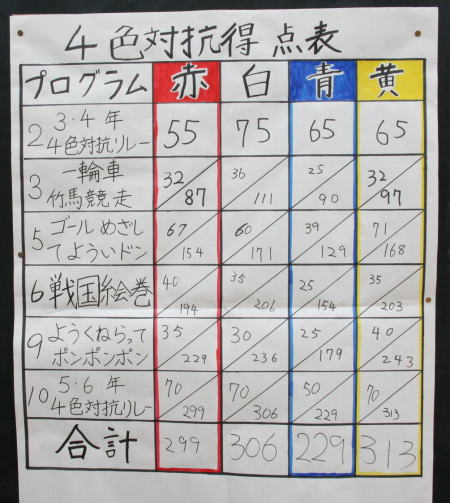 4色対抗得点表
プログラム 赤 白 青 黄
2 3·4年 4色対抗リレー 55 75 65 65
3 一輪車 竹馬競走 32/87 36/111 25/90 32/97
5 ゴールめざし てよういドン 67/154 60/171 39/129 71/168
6 戦国絵巻 40/194 35/206 25/154 35/203
9 ようくねらって ポンポンポン 35/229 30/236 25/179 40/243
10 5·6年 4色対抗リレー 70/299 70/306 50/229 70/313
合計 299 306 229 313